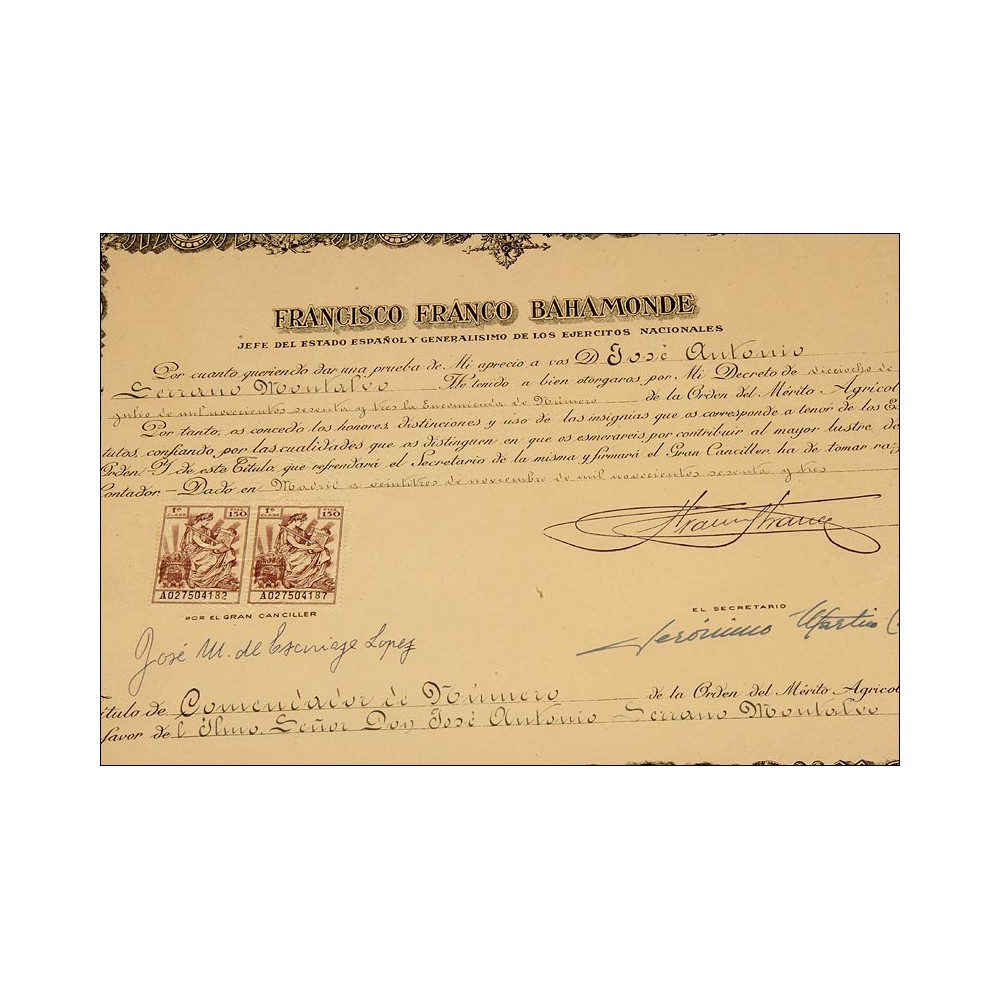 FRANCISCO FRANCO BAHAMONDE
JEFE DEL ESTADO ESPAÑOL Y GENERALISIMO DE LOS EJERCITOS NACIONALES
Por cuanto queriendo dar una prueba de Mi aprecio a vos D José Antonio
Serrano Montalvo He tenido a bien otorgaros por Mi Decreto de dieciocho de
julio de mil novecientos sesenta y tres la Encomienda de Número de la Orden del Mérito Agricol
Por tanto, os concedo los honores, distinciones y uso de las insignias que os corresponde a tenor de los E
tutos, confiando por las cualidades que os distinguen en que os esmerareis por contribuir al mayor lustre de
Orden Y de este Título, que refrendará el Secretario de la misma y firmará el Gran Canciller, ha de tomar ra
Contador Dado en Madrid a veintitres de noviembre de mil novecientos sesenta y tres
1ª CLASE 150 1ª CLASE 150
A027504182 A027504187
POR EL GRAN CANCILLER
EL SECRETARIO
José M. de Escriaze Lopez
Jerónimo Martin
ítulo de Comendador de Número de la Orden del Mérito Agricol
favor del Ilmo. Señor Don José Antonio Serrano Montalvo